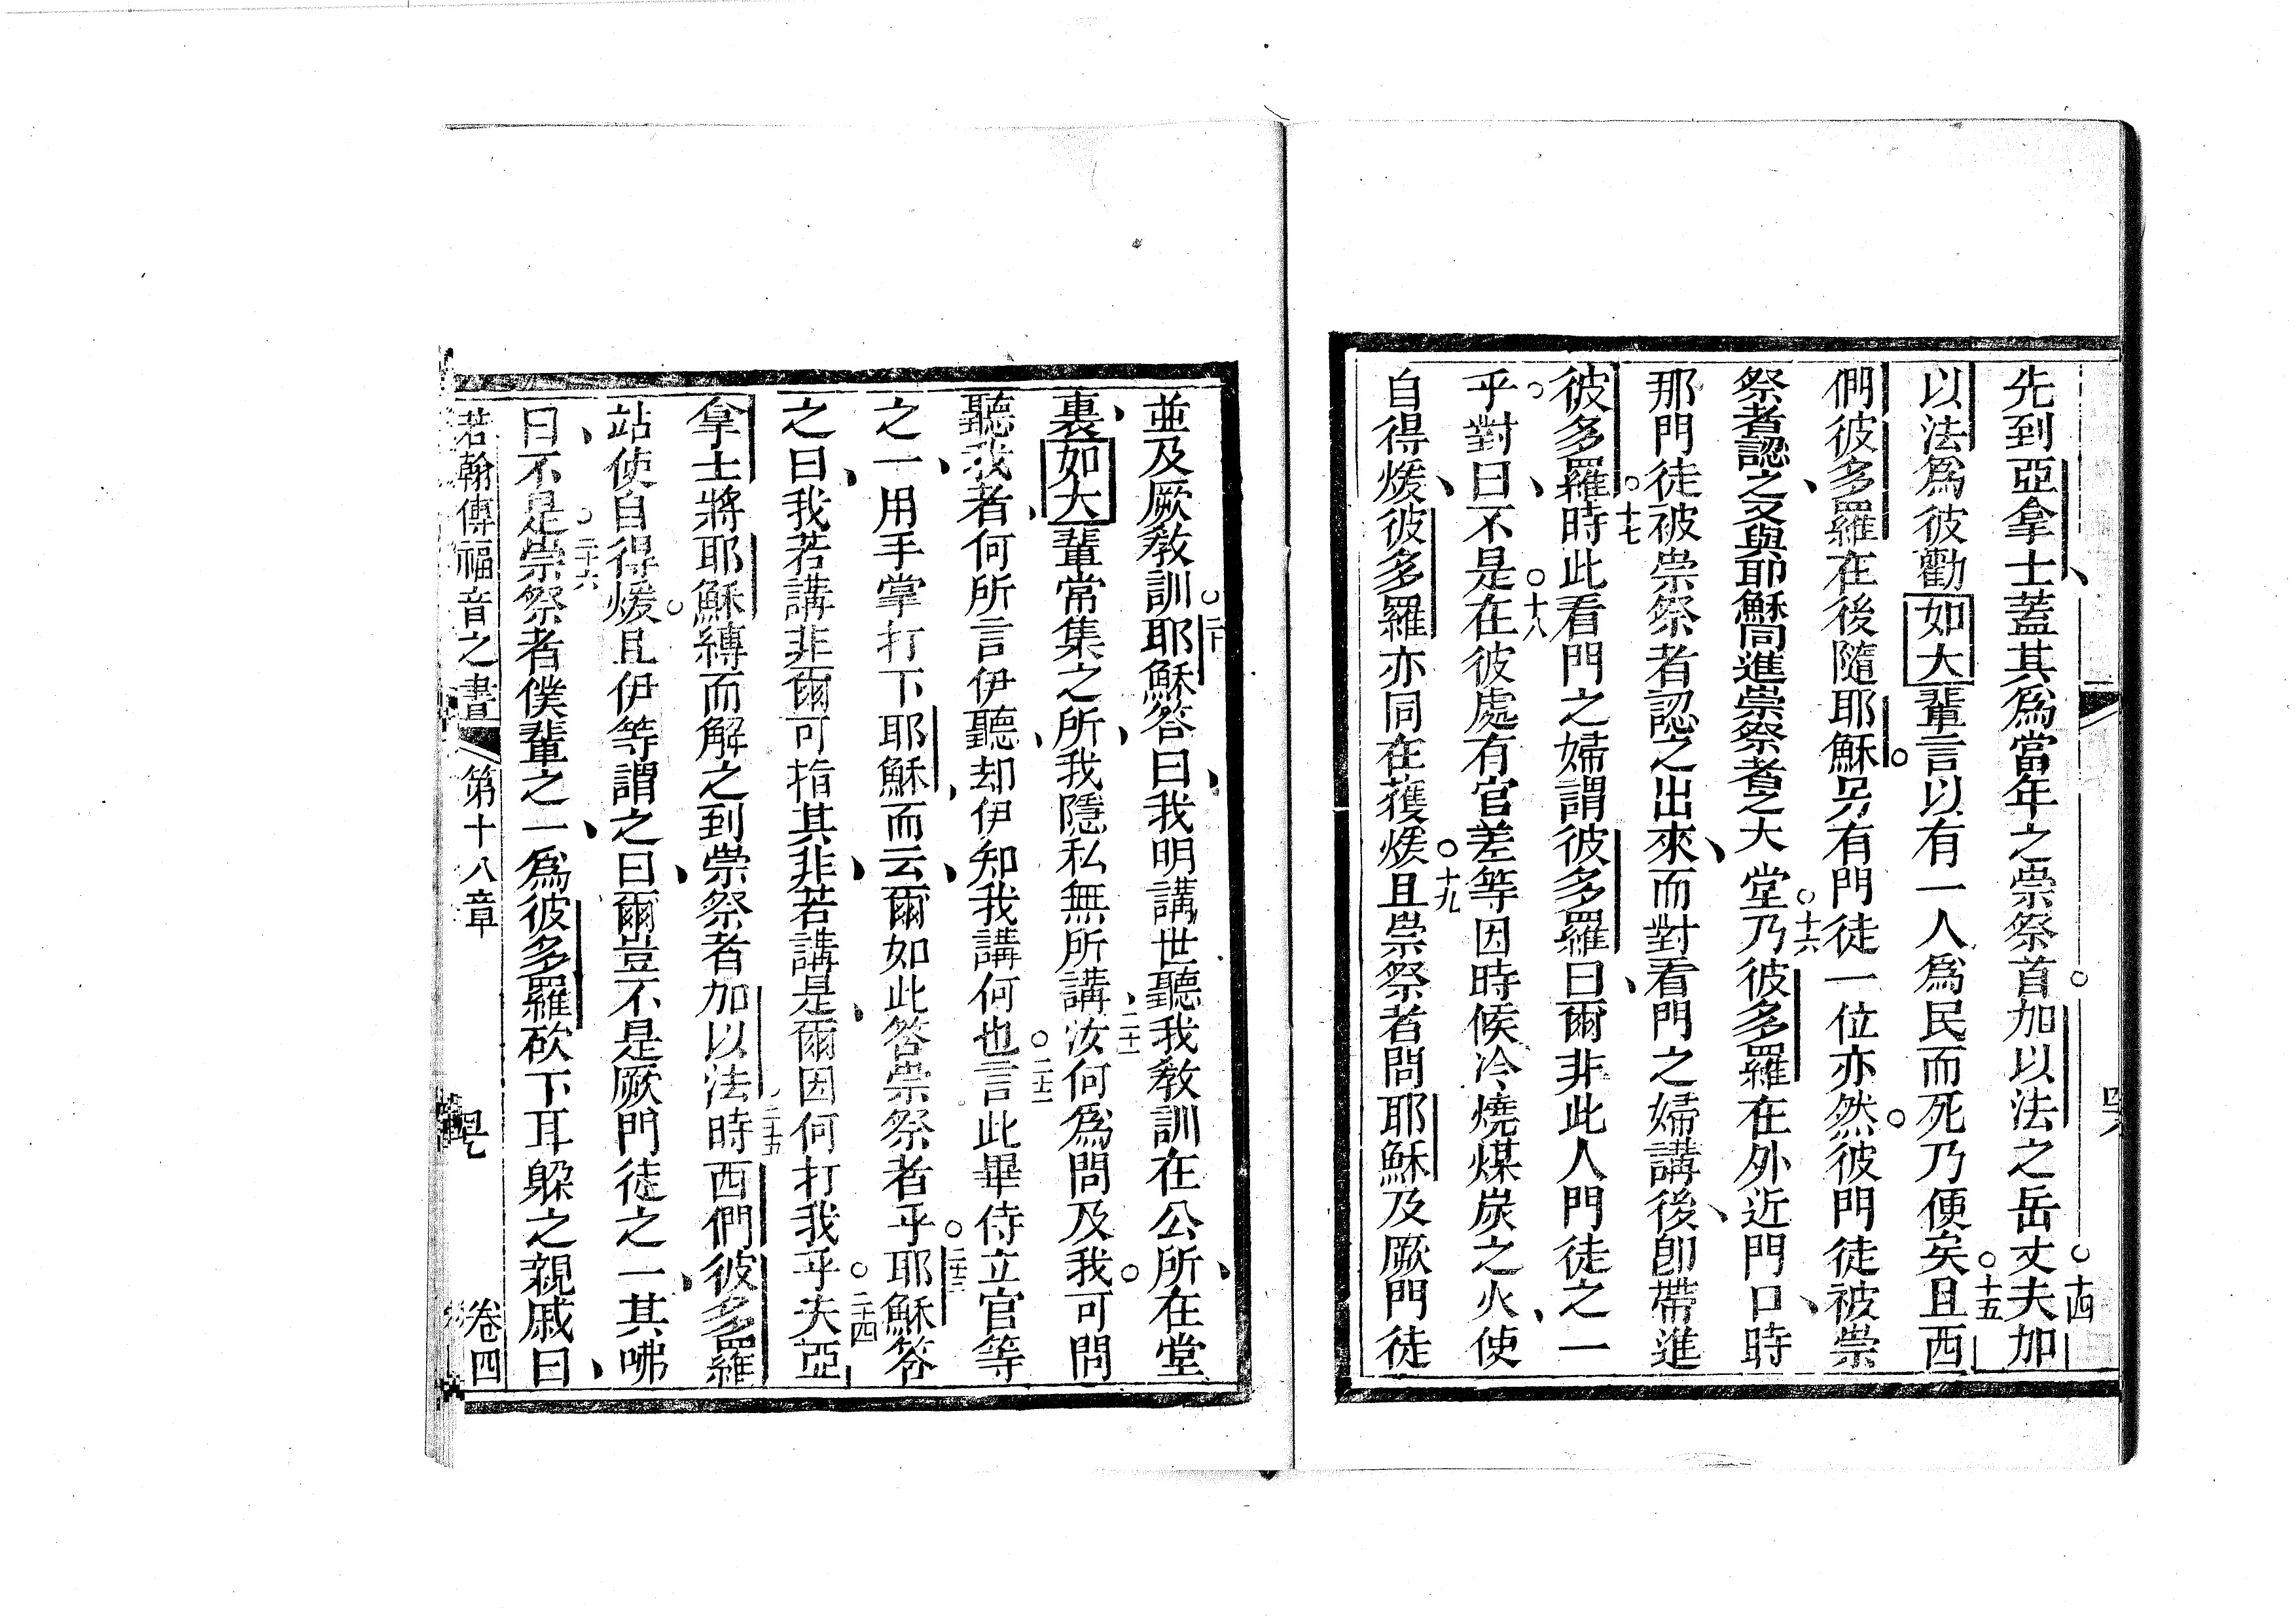 先到亞拿士蓋其爲當年之崇祭首加以法之岳丈夫加
十四
以法爲彼勸如大輩言以有一人爲民而死乃便矣且西
十五
們彼多羅在後隨耶穌另有門徒一位亦然彼門徒被崇
祭者認之又與耶穌同進崇祭者之大堂乃彼多羅在外近門口時
十六
那門徒被崇祭者認之出來而對看門之婦講後卽帶進
彼多羅時此看門之婦謂彼多羅曰爾非此人門徒之一
十七
乎對曰不是在彼處有官差等因時候冷燒煤炭之火使
十八
自得煖彼多羅亦同在獲煖且崇祭者問耶穌及厥門徒
十九
並及厥教訓耶穌答曰我明講世聽我教訓在公所在堂
二十
裏如大輩常集之所我隱私無所講汝何爲問及我可問
二十一
聽我者何所言伊聽却伊知我講何也言此畢侍立官等
二十二
之一用手掌打下耶穌而云爾如此答崇祭者乎耶穌答
二十三
之曰我若講非爾可指其非若講是爾因何打我乎夫亞
二十四
拿士將耶穌縛而解之到崇祭者加以法時西們彼多羅
二十五
站使自得煖且伊等謂之曰爾豈不是厥門徒之一其咈
曰不是崇祭者僕輩之一爲彼多羅砍下耳躲之親戚曰
二十六
若翰傳福音之書 第十八章 卷四